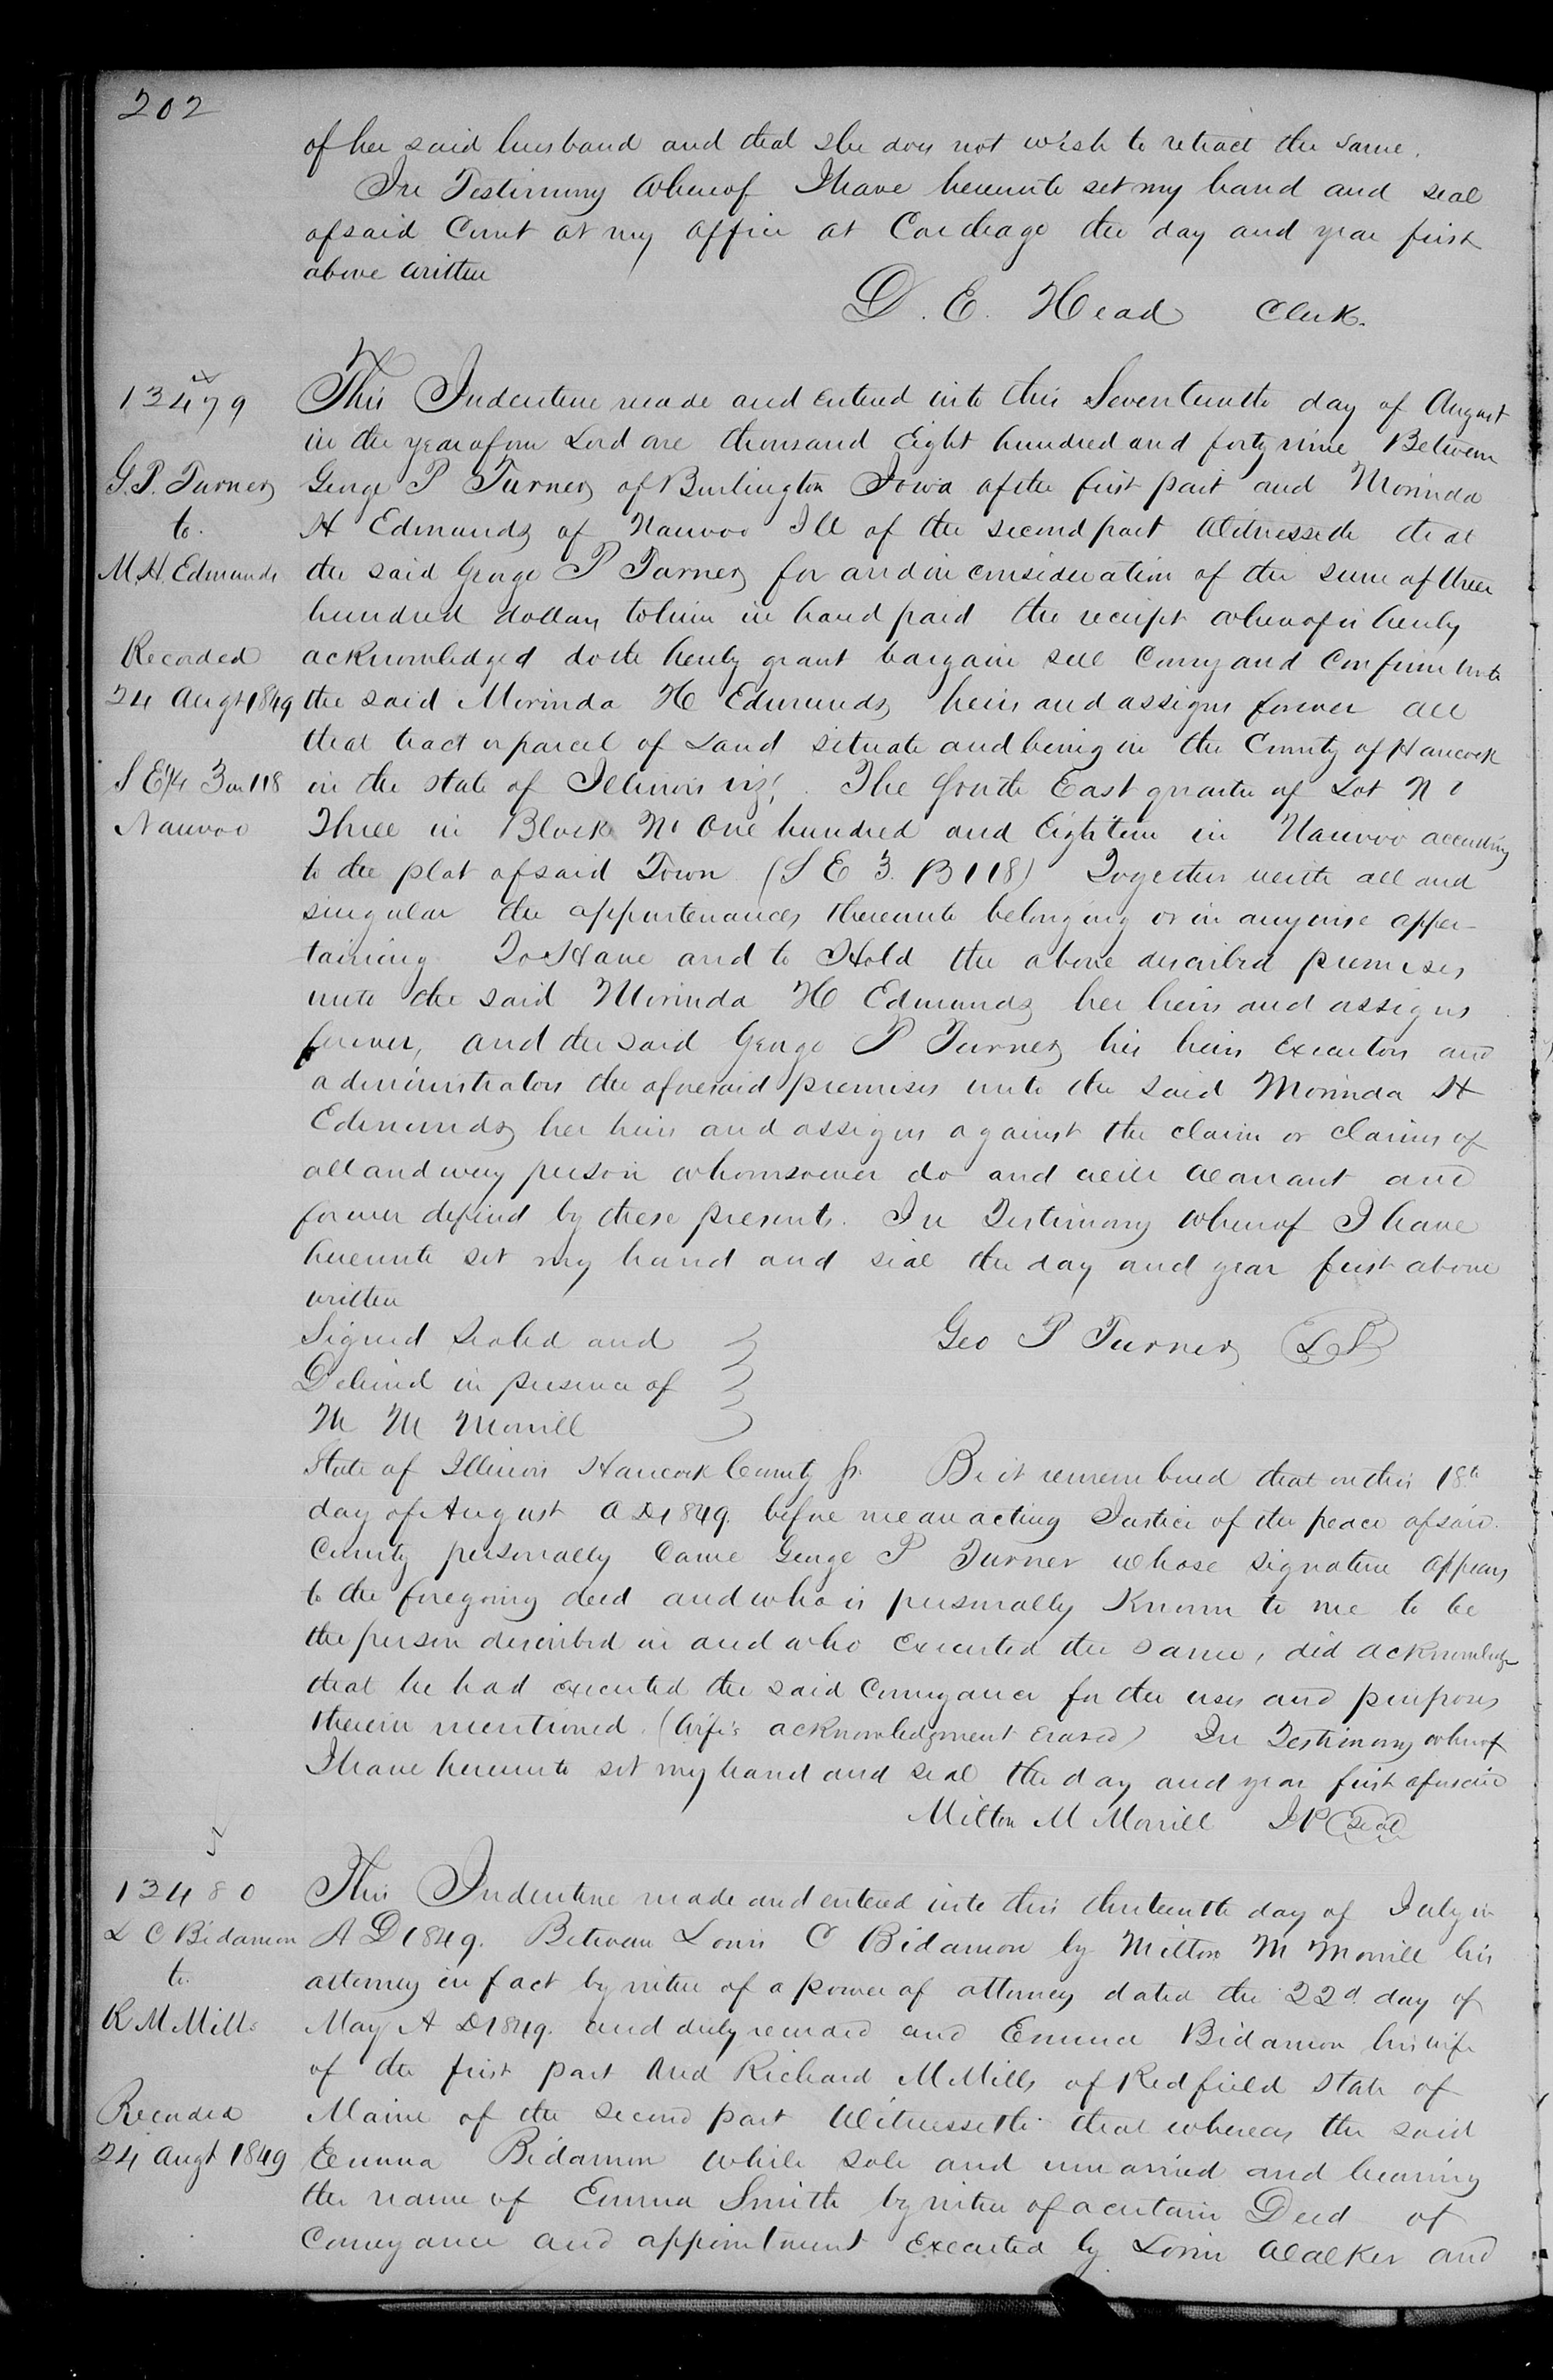 202
of her said husband and that she does not wish to retract the same.
In Testimony Whereof I have hereunto set my hand and seal
of said Court at my office at Carthage the day and year first
above written
D. E. Head Clerk.
13479
G. P. Turner
to.
M. H. Edmunds
Recorded
24 Augt 1849
S E 1/4 3 in 118
Nauvoo
This Indenture made and entered into this Seventeenth day of August
in the year of our Lord one thousand Eight hundred and forty nine Between
George P Turner of Burlington Iowa of the first part and Morinda
H Edmunds of Nauvoo Ill of the second part Witnesseth that
the said George P Turner for and in consideration of the sum of three
hundred dollars to him in hand paid the receipt whereof is hereby
acknowledged doth hereby grant bargain sell Convey and Confirm unto
the said Morinda H Edmunds heirs and assigns forever all
that tract or parcel of Land situate and being in the County of Hancock
in the state of Illinois viz. The South East quarter of Lot No
Three in Block No One hundred and Eighteen in Nauvoo according
to the plat of said Town (S E 3. B 118) Together with all and
singular the appurtenances thereunto belonging or in anywise apper-
taining To Have and to Hold the above described premises
unto the said Morinda H Edmunds her heirs and assigns
forever, and the said George P Turner his heirs Executors and
administrators the aforesaid premises unto the said Morinda H
Edmunds her heirs and assigns against the claim or claims of
all and every person whomsoever do and will Warrant and
forever defend by these presents. In Testimony Whereof I have
hereunto set my hand and seal the day and year first above
written
Signed Sealed and
Delived in presence of
M M Morrill
Geo P Turner L S
State of Illinois Hancock County ss. Be it remembered that on this 18th
day of August A D 1849. before me an acting Justice of the peace of said
County personally Came George P Turner whose signature appears
to the foregoing deed and who is personally Known to me to be
the person described in and who Executed the same, did acknowledge
that he had executed the said Conveyance for the uses and purposes
therein mentioned. (Wife's acknowledgment erased) In Testimony whereof
I have hereunto set my hand and seal the day and year first aforesaid
Milton M Morrill J P Seal
13480
L C Bidamon
to.
R M Mills
Recorded
24 Augt 1849
This Indenture made and entered into this thirteenth day of July in
A D 1849. Between Louis C Bidamon by Milton M Morrill his
attorney in fact by virtue of a power of attorney dated the 22d. day of
May A D 1849. and duly recorded and Emma Bidamon his wife
of the first part And Richard M Mills of Redfield State of
Maine of the second part Witnesseth that whereas the said
Emma Bidamon While sole and unmarried and bearing
the name of Emma Smith by virtue of a certain Deed of
Conveyance and appointment Executed by Lorin Walker and